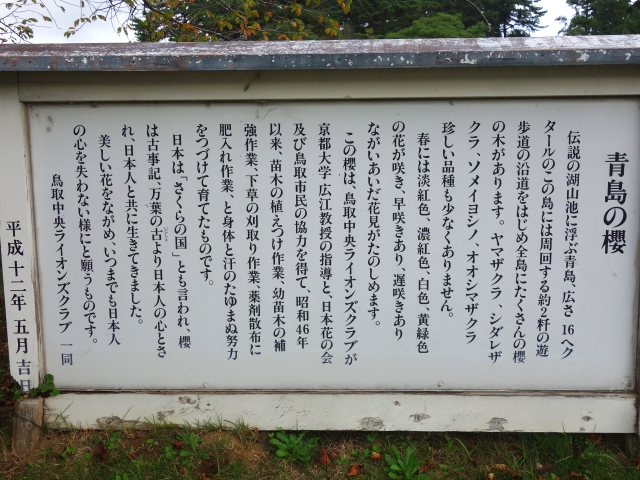 青島の櫻
伝説の湖山池に浮ぶ青島、広さ 16ヘク
タールのこの島には周回する約2粁の遊
歩道の沿道をはじめ全島にたくさんの櫻
の木があります。ヤマザクラ、シダレザ
クラ、ソメイヨシノ、オオシマザクラ
珍しい品種も少なくありません。
春には淡紅色、濃紅色、白色、黄緑色
の花が咲き、早咲きあり、遅咲きあり
ながいあいだ花見がたのしめます。
この櫻は、鳥取中央ライオンズクラブが
京都大学 広江教授の指導と、日本花の会
及び鳥取市民の協力を得て、昭和46年
以来、苗木の植えつけ作業、幼苗木の補
強作業、下草の刈取り作業、薬剤散布に
肥入れ作業、と身体と汗のたゆまぬ努力
をつづけて育てたものです。
日本は「さくらの国」とも言われ、櫻
は古事記、万葉の古より日本人の心とさ
れ、日本人と共に生きてきました。
美しい花をながめ、いつまでも日本人
の心を失わない様にと願うものです。
鳥取中央ライオンズクラブ 一同
平成十二年 五月 吉日